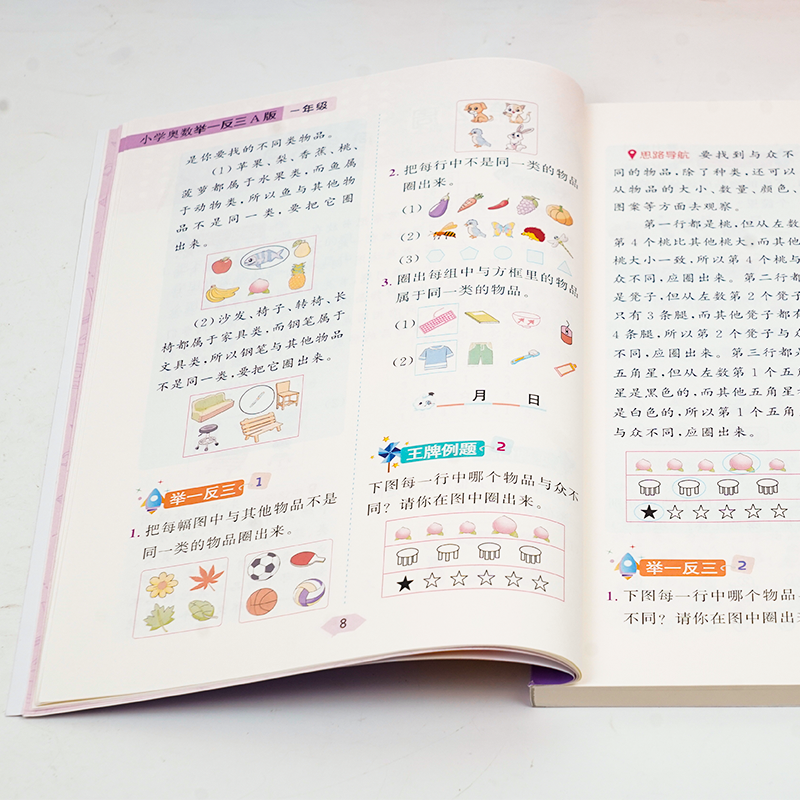 小学奥数举一反三A版 一年级
是你要找的不同类物品。
(1)苹果、梨、香蕉、桃、
菠萝都属于水果类,而鱼属
于动物类,所以鱼与其他物
品不是同一类,要把它圈
出来。
(2)沙发、椅子、转椅、长
椅都属于家具类,而钢笔属于
文具类,所以钢笔与其他物品
不是同一类,要把它圈出来。
举一反三 1
1. 把每幅图中与其他物品不是
同一类的物品圈出来。
2. 把每行中不是同一类的物品
圈出来。
(1)
(2)
(3)
3. 圈出每组中与方框里的物品
属于同一类的物品。
(1)
(2)
月 日
王牌例题 2
下图每一行中哪个物品与众不
同?请你在图中圈出来。
8
思路导航 要找到与众不
同的物品,除了种类,还可以
从物品的大小、数量、颜色、
图案等方面去观察。
第一行都是桃,但从左数
第4个桃比其他桃大,而其他
桃大小一致,所以第4个桃与
众不同,应圈出来。第二行都
是凳子,但从左数第2个凳子
只有3条腿,而其他凳子都有
4条腿,所以第2个凳子与众
不同,应圈出来。第三行都是
五角星,但从左数第1个五角
星是黑色的,而其他五角星
是白色的,所以第1个五角星
与众不同,应圈出来。
举一反三 2
1. 下图每一行中哪个物品
不同?请你在图中圈出来